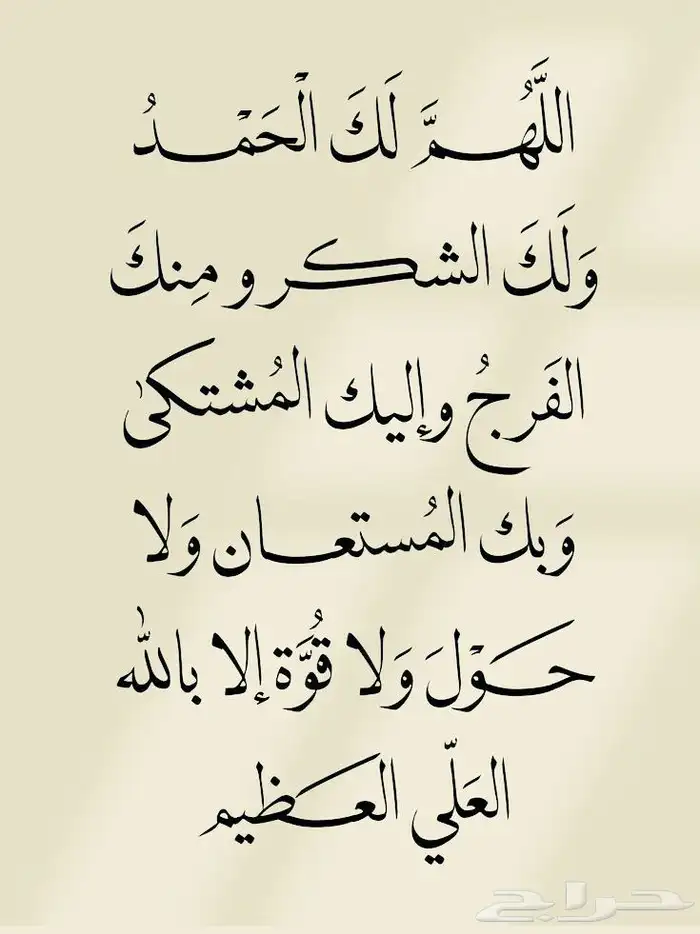 اللَّهُمَّ لَكَ الْحَمْدُ
وَلَكَ الشكر و مِنكَ
الفَرجُ وإليك المُشتكىٰ
وَبك المُستعان وَلا
حَوْلَ وَلا قُوَّة إلا بالله
العَلّي العَظيم
حراج